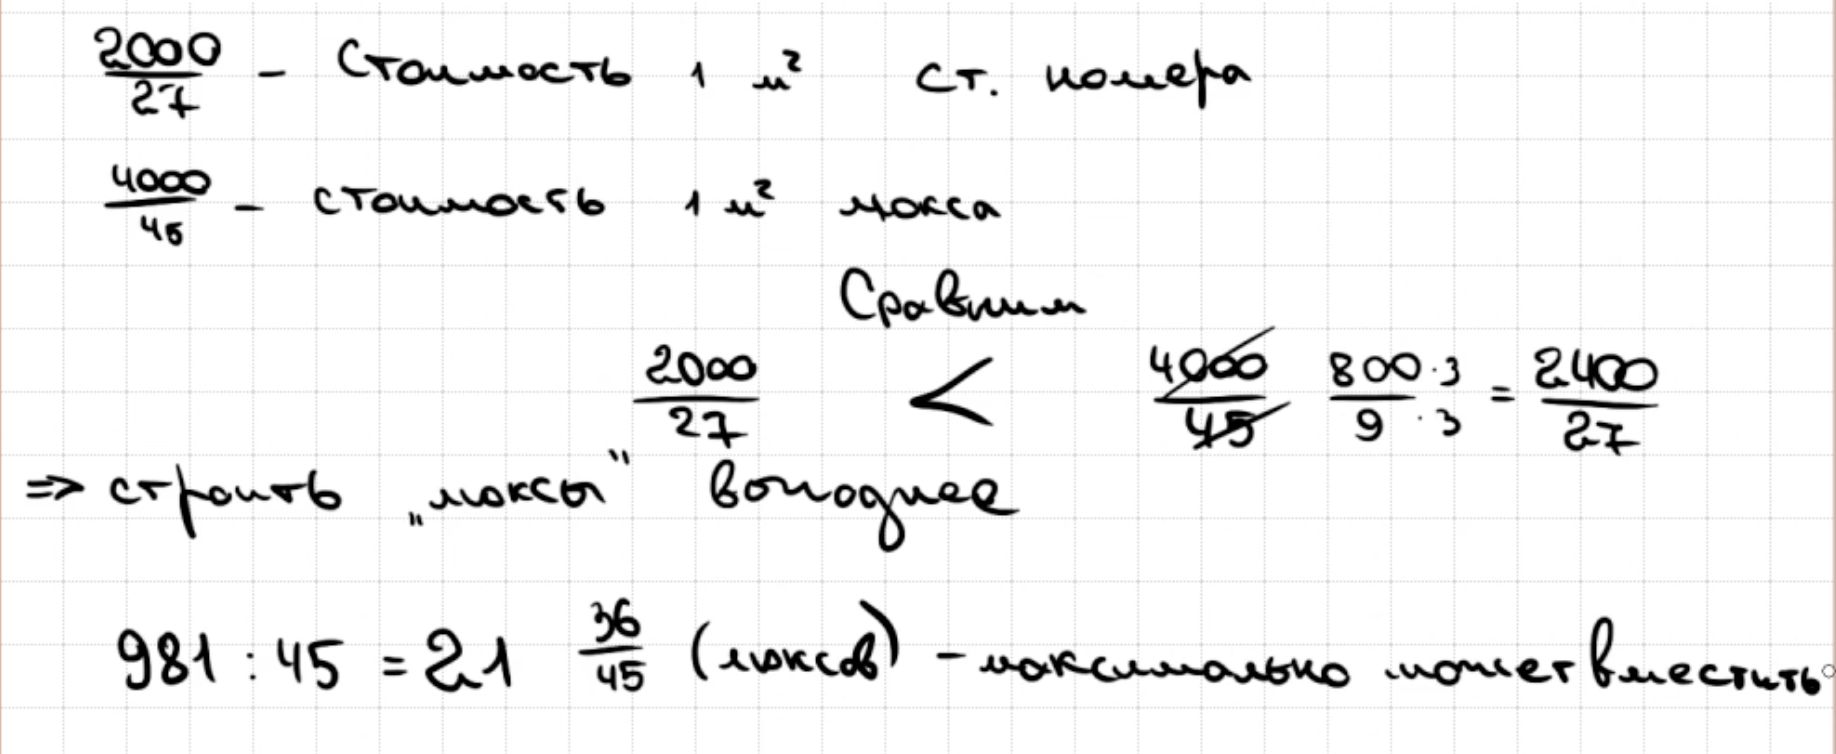 2000/27 - Стоимость 1 м² ст. номера
4000/45 - стоимость 1 м² люкса
Сравним
2000/27 < 4000/45 800·3/9·3 = 2400/27
=> строить „люксы" выгоднее
981 : 45 = 21 36/45 (люксов) - максимально может вместить